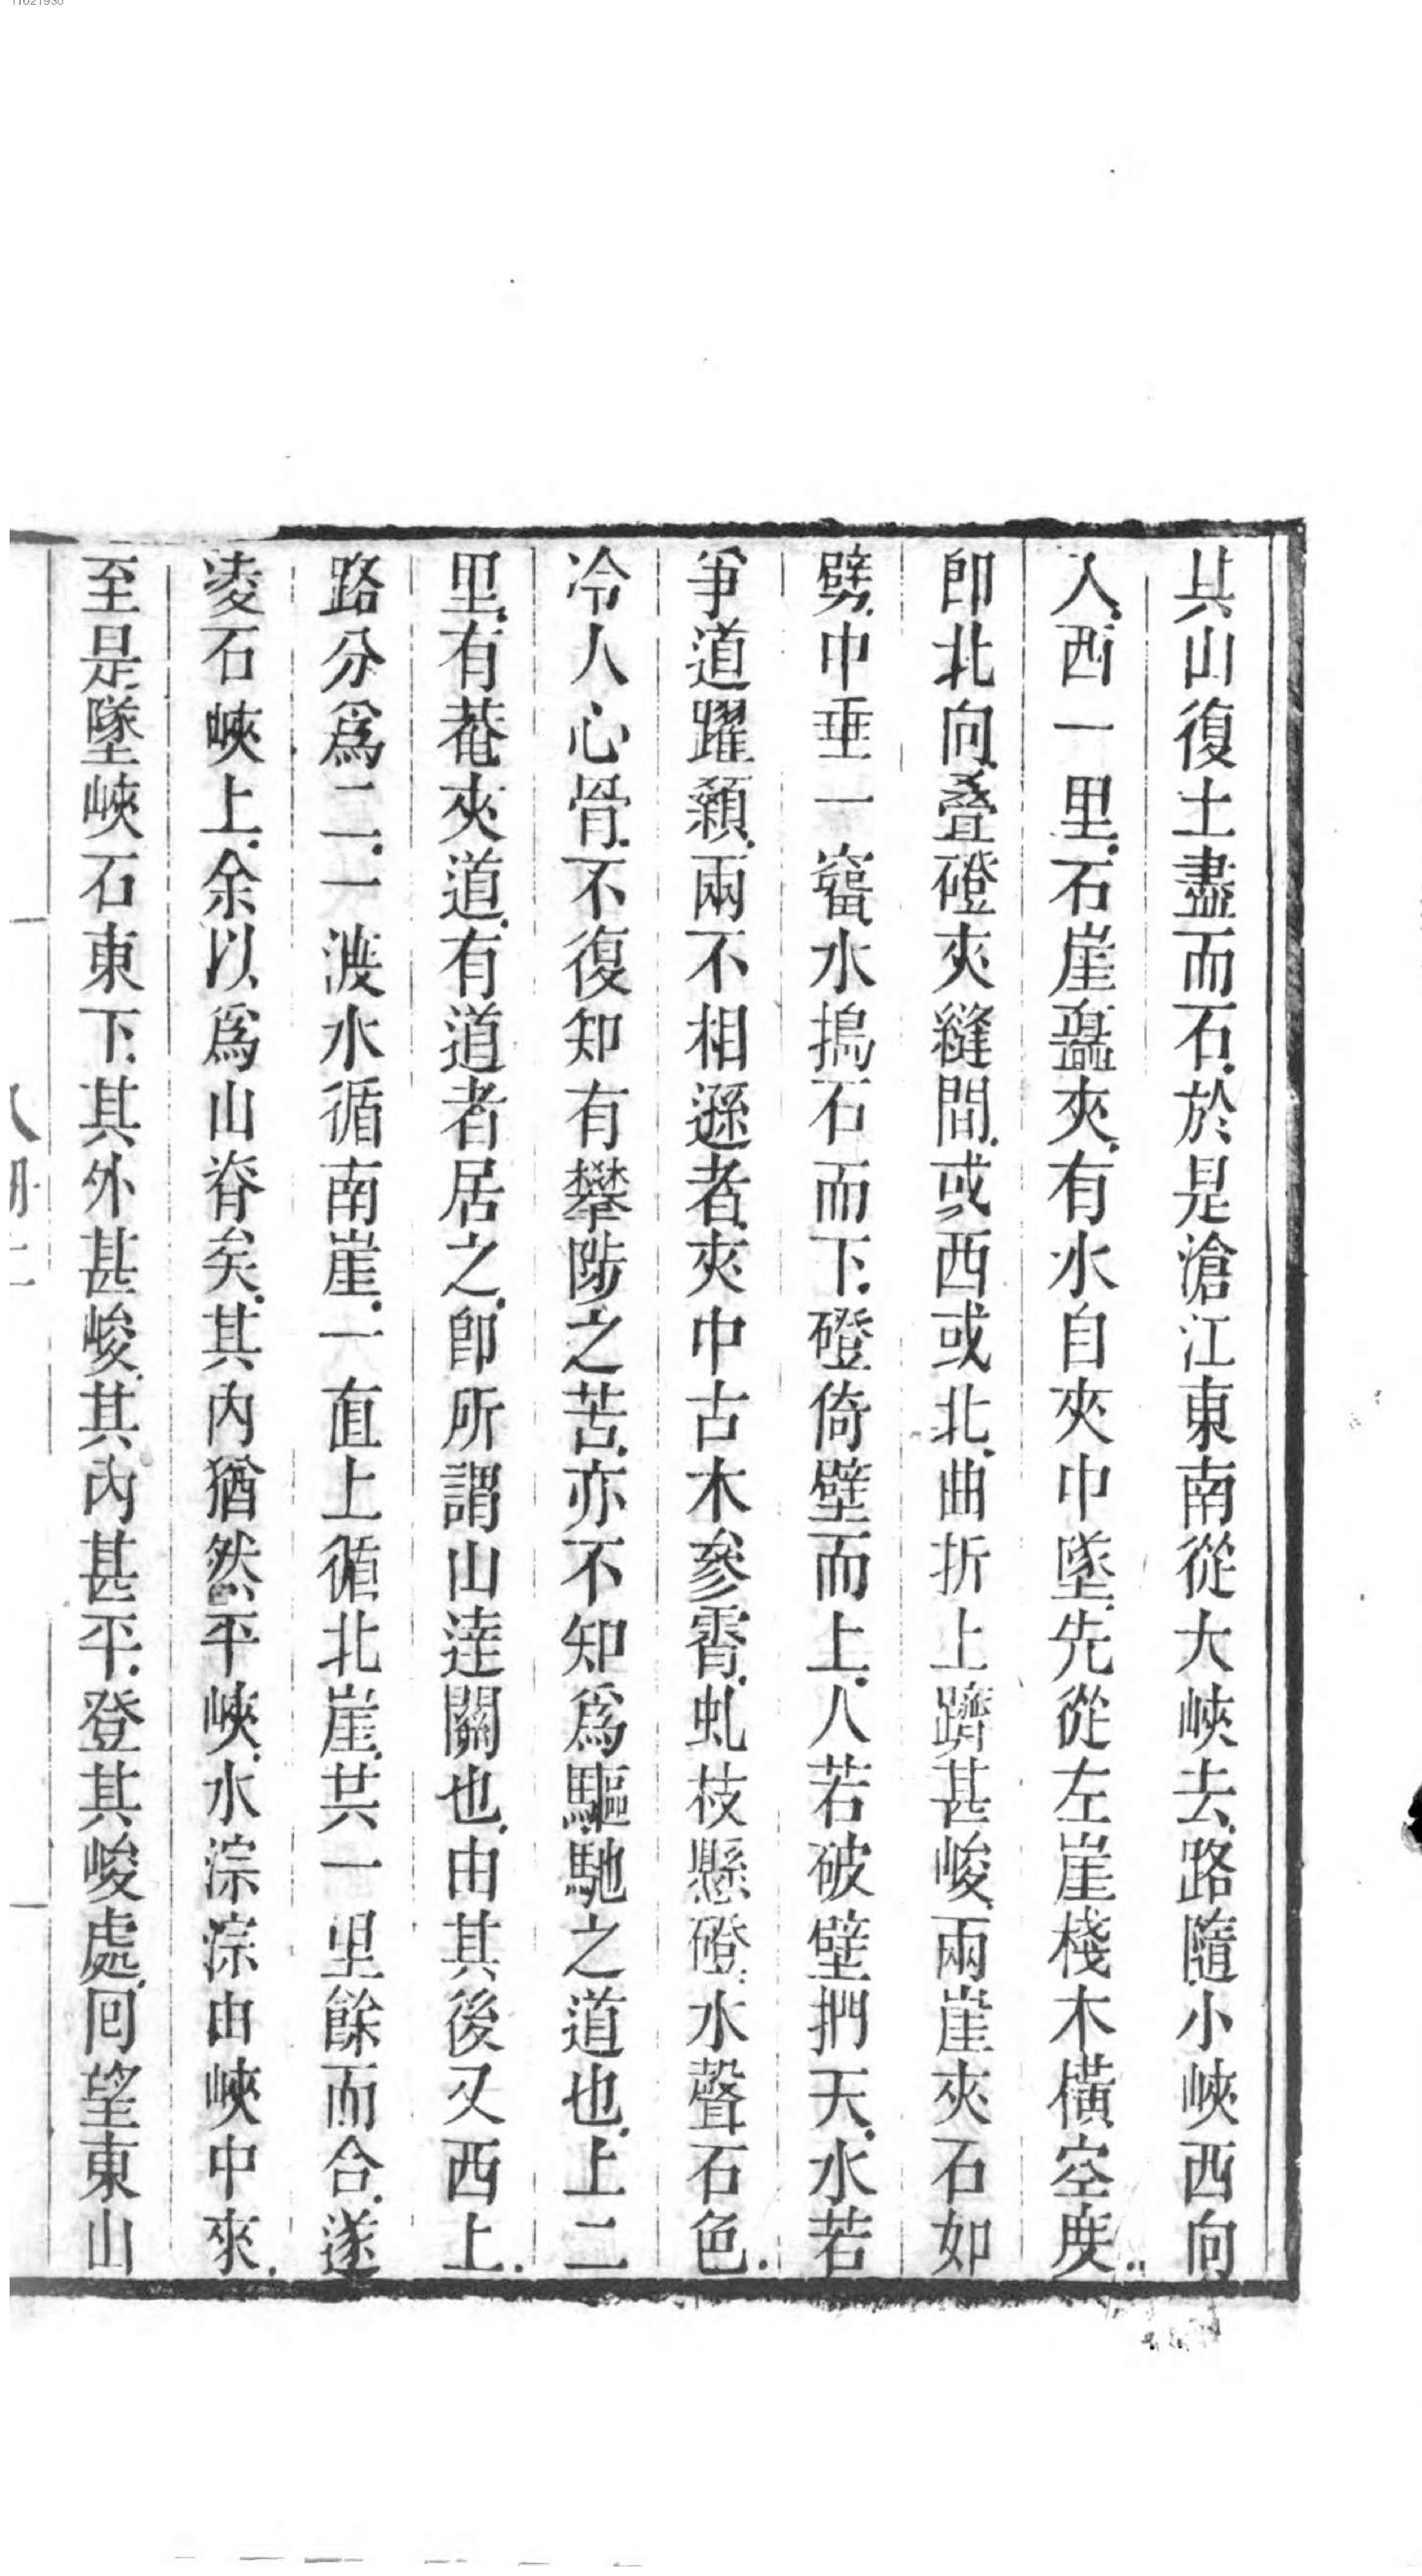 11021930
其山復土盡而石.於是滄江東南從大峽去.路隨小峽西向
入.西一里.石崖矗夾.有水自夾中墜.先從左崖棧木橫空度.
即北向.叠磴夾縫間.或西或北.曲折上躋甚峻.兩崖夾石如
劈.中垂一霤.水搗石而下.磴倚壁而上.人若破壁捫天.水若
爭道躍顙.兩不相遜者.夾中古木參霄.虬枝懸磴.水聲石色.
冷人心骨.不復知有攀陟之苦.亦不知爲驅馳之道也.上二
里.有菴夾道.有道者居之.即所謂山達關也.由其後又西上.
路分爲二.一渡水循南崖.一直上循北崖.共一里餘而合.遂
凌石峽上.余以爲山脊矣.其內猶然平峽.水淙淙由峽中來.
至是墜峽石東下.其外甚峻.其內甚平.登其峻處.回望東山